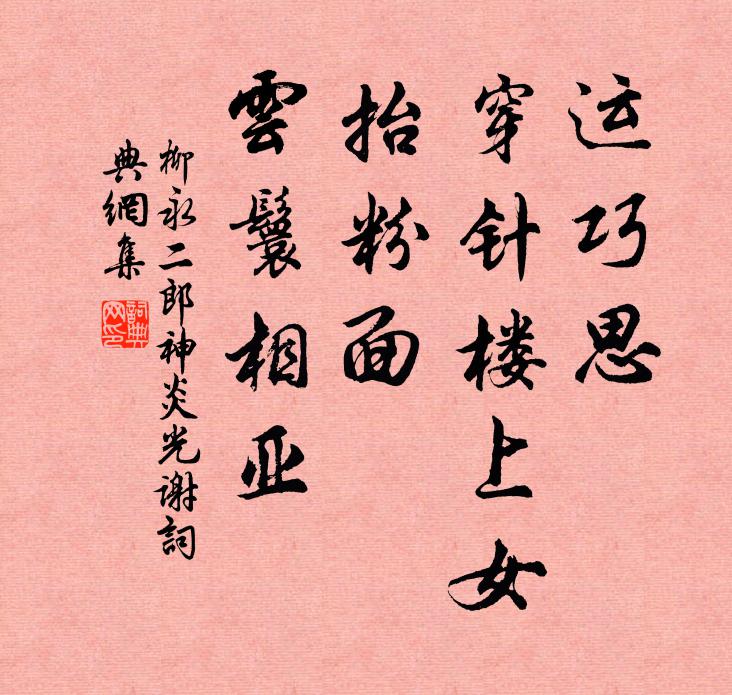 运巧思
穿针楼上女
抬粉面
雲鬟相亚
柳永二郎神炎光谢詞
典網集
詞典
网印